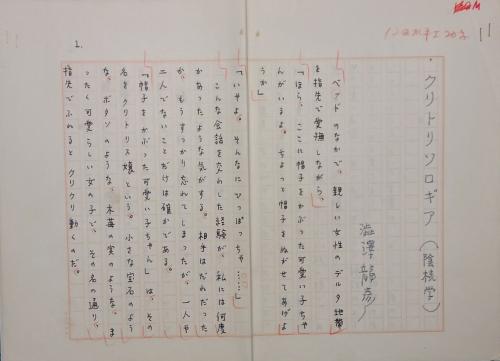 クリトリソロギア（陰核学）
澁澤龍彦
ベッドのなかで、親しい女性のデルタ地帯
を指先で愛撫しながら、
「ほら、ここに帽子をかぶった可愛い子ちゃ
んがいるよ。ちょっと帽子をぬがせてあげよ
うか」
「いやよ。そんなにひっぱっちゃ……」
こんな会話を交わした経験が、私には何度
かあったような気がする。相手はだれだった
か、もうすっかり忘れてしまったが、一人や
二人でないことだけは確かである。
「帽子をかぶった可愛い子ちゃん」は、その
名をクリトリス嬢という。小さな宝石のよう
な、ボタンのような、木苺の実のような、ま
ったく可愛らしい女の子で、その名の通り、
指先でふれるとクリクリ動くのだ。
1.